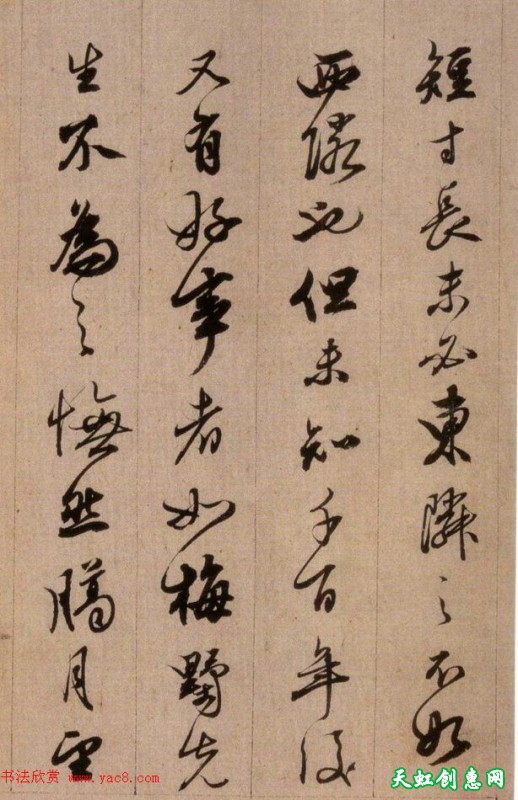 短寸長未必東隣之不如
西隣也但未知千百年後
又有好事者如梅墅先
生不為之憮然臈月望
书法欣赏 www.yac8.com
天虹创惠网